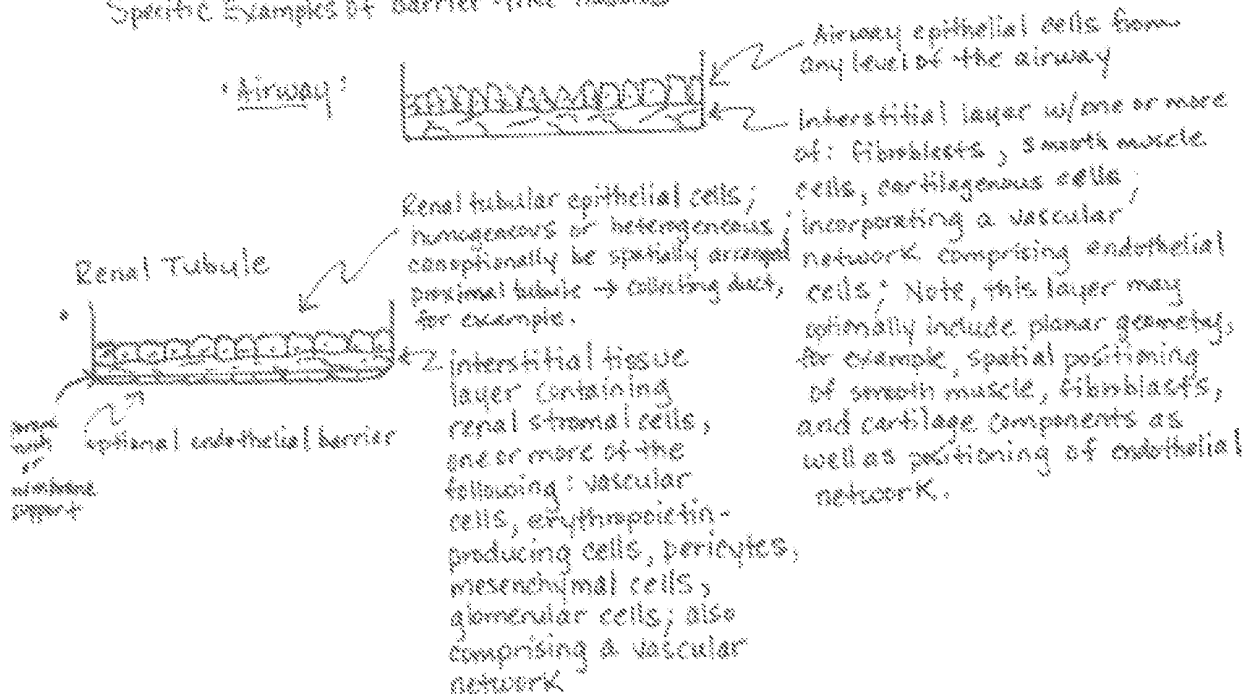 Specific Examples of Barrier-like Tissues
• Airway:
Airway epithelial cells from
any level of the airway
Interstitial layer w/one or more
of: fibroblasts, smooth muscle
cells, cartilagenous cells;
incorporating a vascular
network comprising endothelial
cells; Note, this layer may
optionally include planar geometry,
for example, spatial positioning
of smooth muscle, fibroblasts,
and cartilage components as
well as positioning of endothelial
network.
• Renal Tubule
Renal tubular epithelial cells;
homogeneous or heterogeneous;
can optionally be spatially arranged
proximal tubule → collecting duct,
for example.
interstitial tissue
layer containing
renal stromal cells,
one or more of the
following: vascular
cells, erythropoietin-
producing cells, pericytes,
mesenchymal cells,
glomerular cells; also
comprising a vascular
network
optional endothelial barrier
or
membrane
support